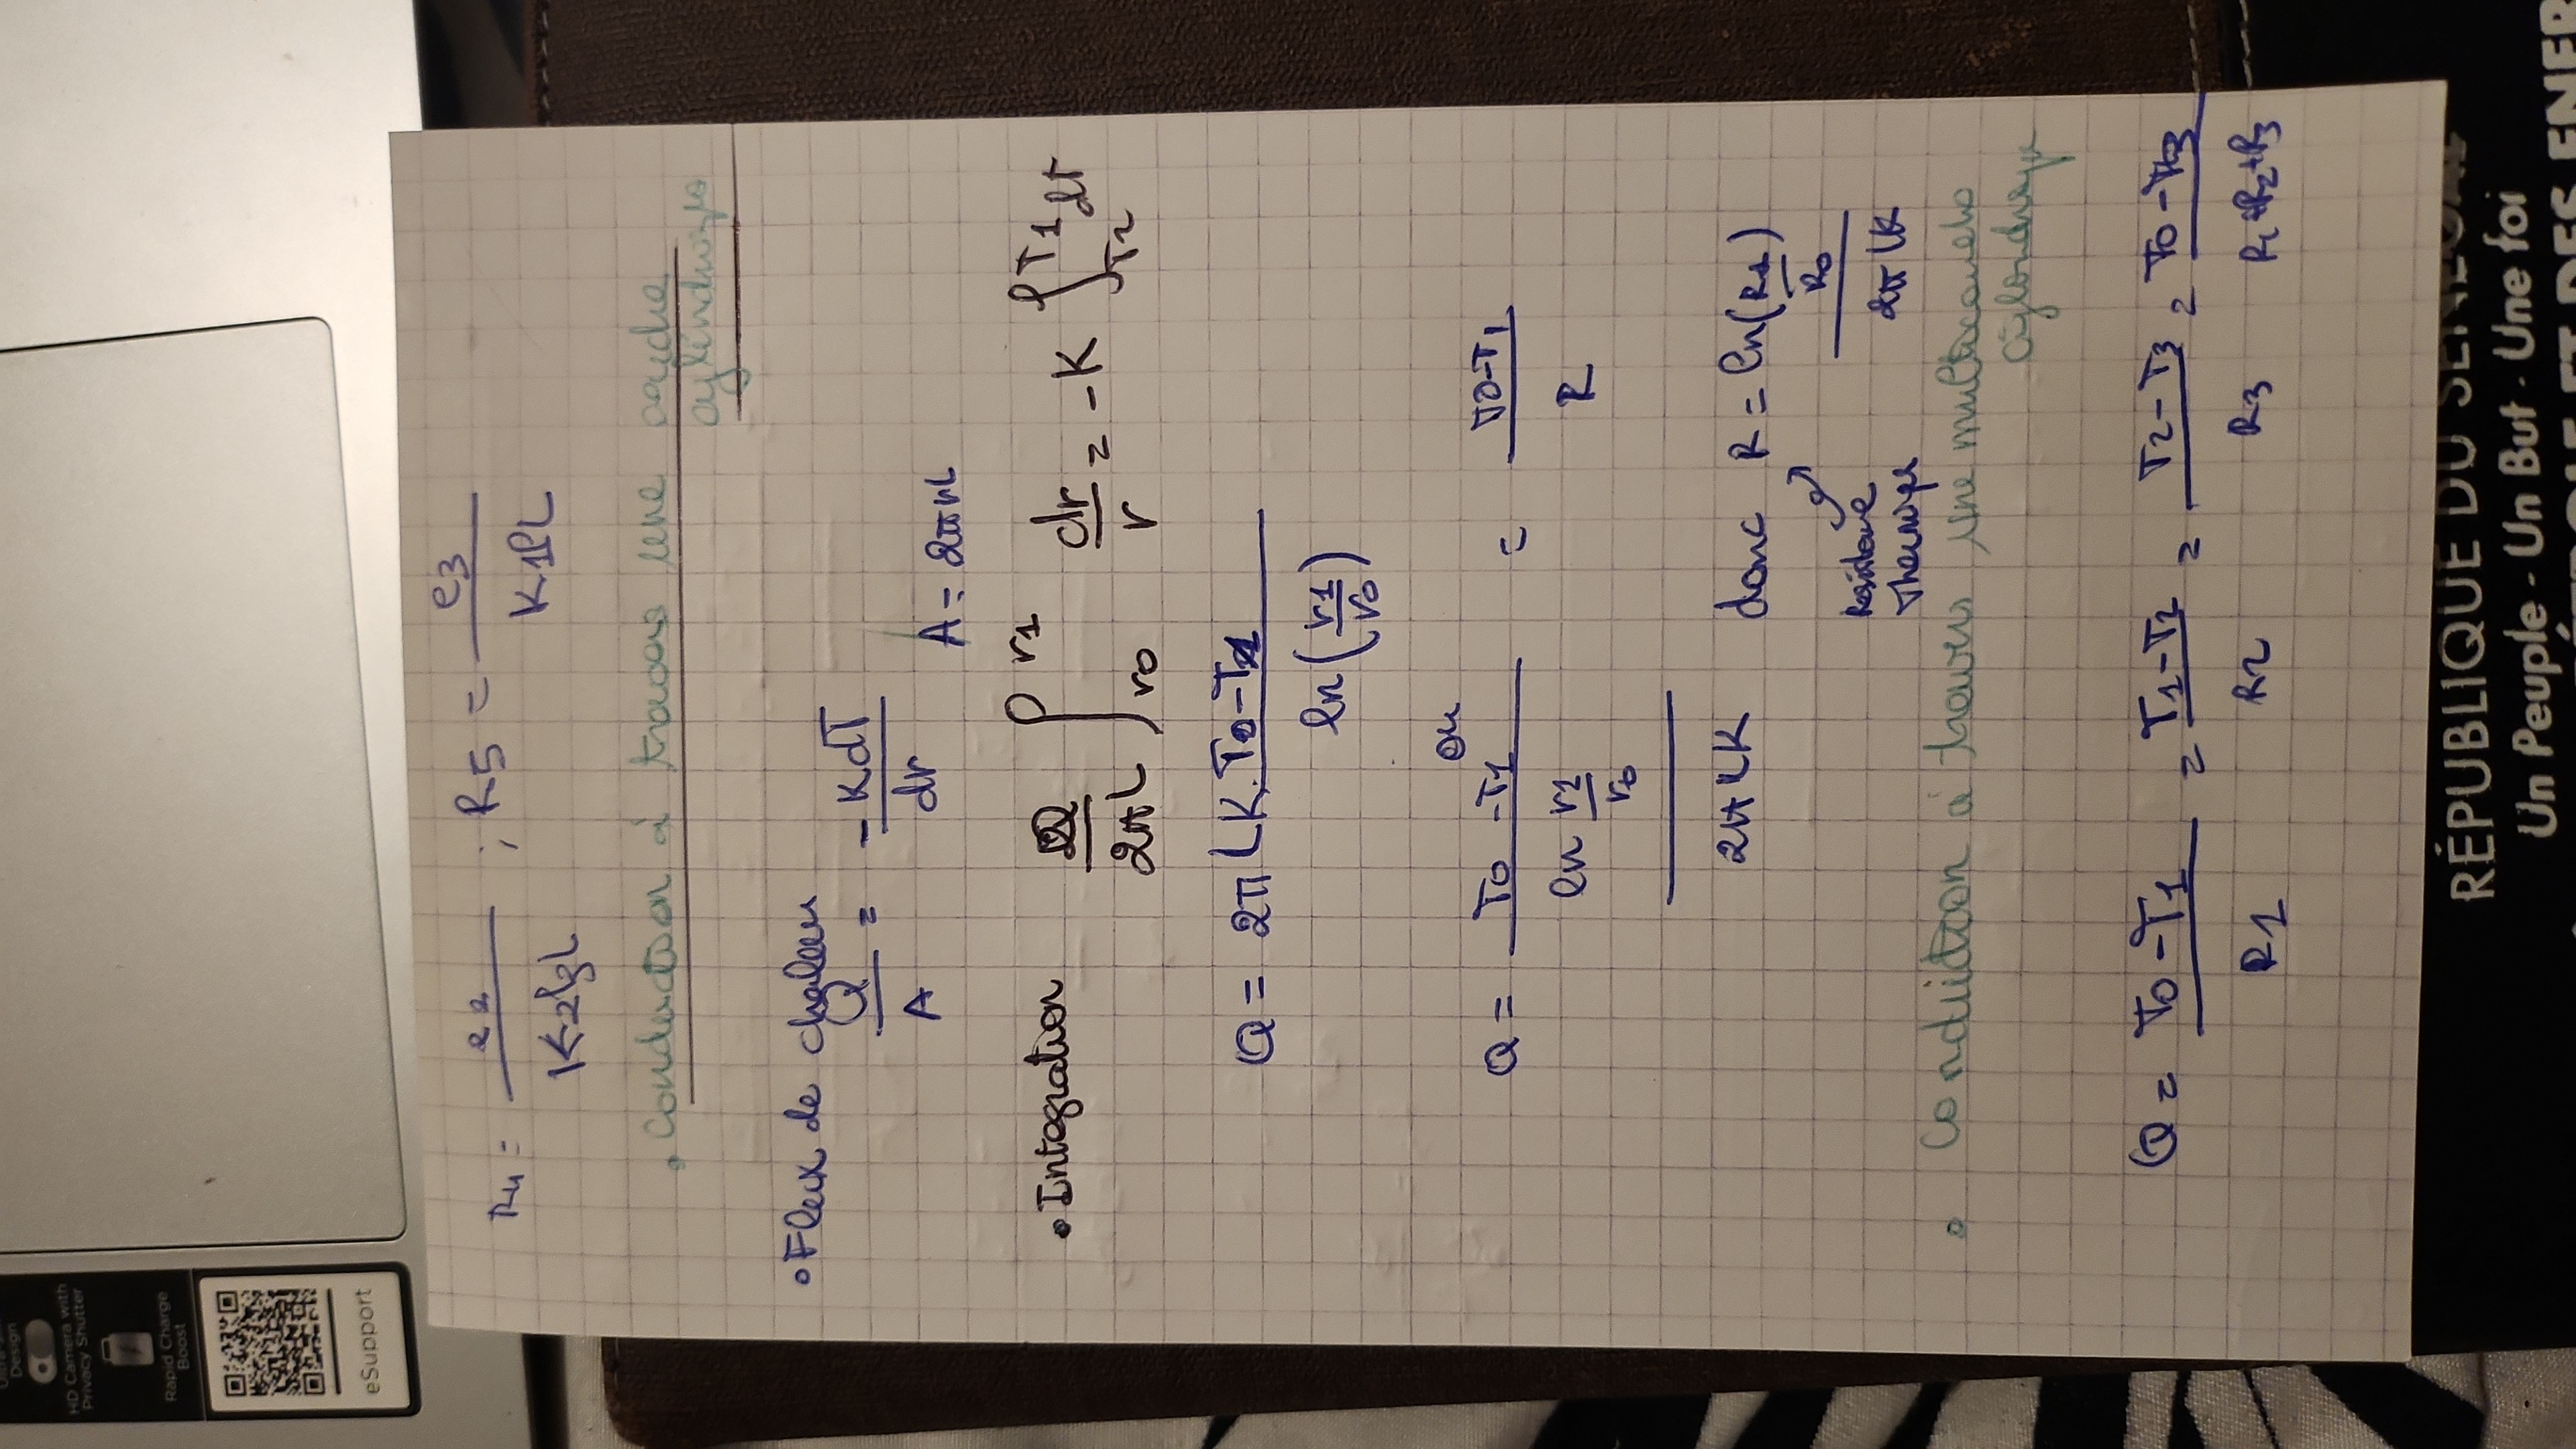 R4 = e2 / K2l3L ; R5 = e3 / K1lL
• Conduction à travers une couche
cylindrique
• Flux de chaleur
Q/A = -KdT/dr
A = 2πrL
• Integration Q/2πL ∫r0 r1 dr/r = -K ∫T2 T1 dT
Q = 2πLK. T0-T1 / ln(r1/r0)
Q = T0-T1 / (ln r1/r0 / 2πLK) ou = T0-T1 / R
donc R = ln(R1/R0) / 2πLK
Résistance
Thermique
• Condiition à travers une multicouche
cylindrique
Q = T0-T1 / R1 = T1-T2 / R2 = T2-T3 / R3 = T0-T3 / R1+R2+R3
Design
HD Camera with
Privacy Shutter
Rapid Charge
Boost
eSupport
RÉPUBLIQUE DU SÉNÉGAL
Un Peuple - Un But - Une foi
ET DES ENER